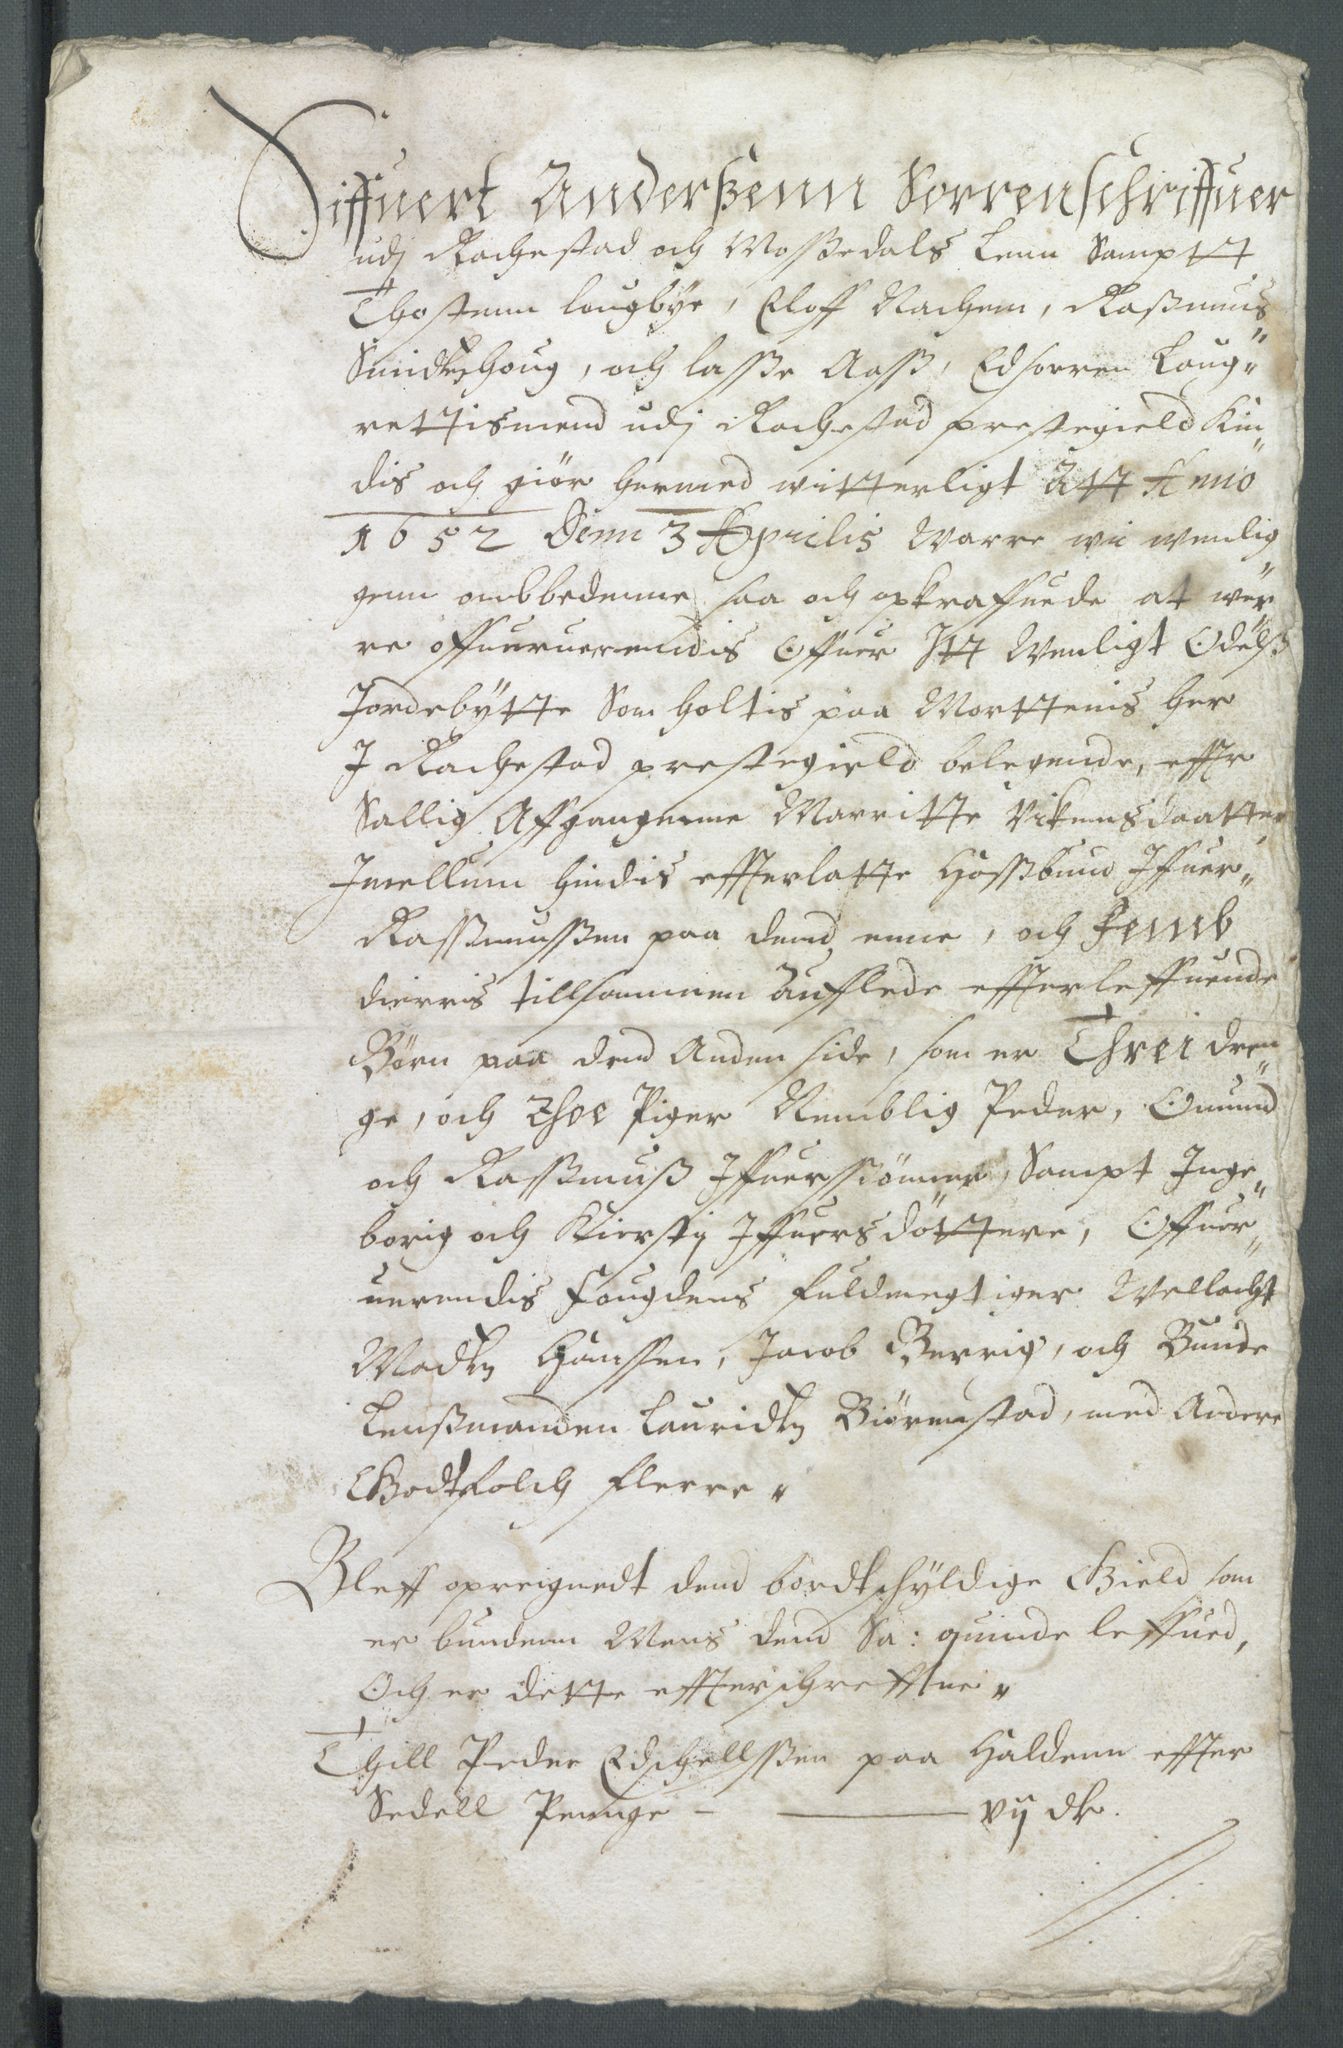 Siffuert Anderßenn Sorrenschriffuer
udj Rachestad och Mossedals Lenn Sampt
Thostenn lougbye, Eloff Nachem, Rasmus
Smidtzhoug, och lasse Aass, Edsorren Laug„
rettismend udj Rachestad prestegield Kin„
dis och giör hermed witterligt Att Anno
1652 Denn 3 Aprilis Warre wii wenlig„
genn ombbedenne saa och opkraffuede at wer„
re offueruerendis Offuer Itt Wenligt Odelß
Jordebytte Som holtis paa Mortenis her
J Rachestad prestegield belegende, effter
Sallig Affgangenne Marritte Vikensdaatter
Jmellum hindis effterlatte Hossbund Jffuer„
Rassmussen paa dend enne, och Femb
dierris tillsammen Auflede effterleffuende
Börn paa dend Anden side, som er Threi dren„
ge, och Thoe Piger Nemblig Peder, Omund
och Rassmuß Jffuerssiönner, Sampt Inge„
borig och Kierstj Jffuersdöttere, Offuer„
uerendis Fougdens fuldmegtiger Wellacht
Madtz Hanssen, Jacob Berrig, och Bunde
Lenßmanden Lauridtz Biörnstad, med Andere
Godtfolch flerre„
Bleff opreignedt dend bordtschyldige Gield som
er bundenn Mens dend Sa: quinde leffued,
Och er dette effterschreffne„
Thill Peder Edschellssen paa Haldenn effter
Sedell Penuge - — vij dr.